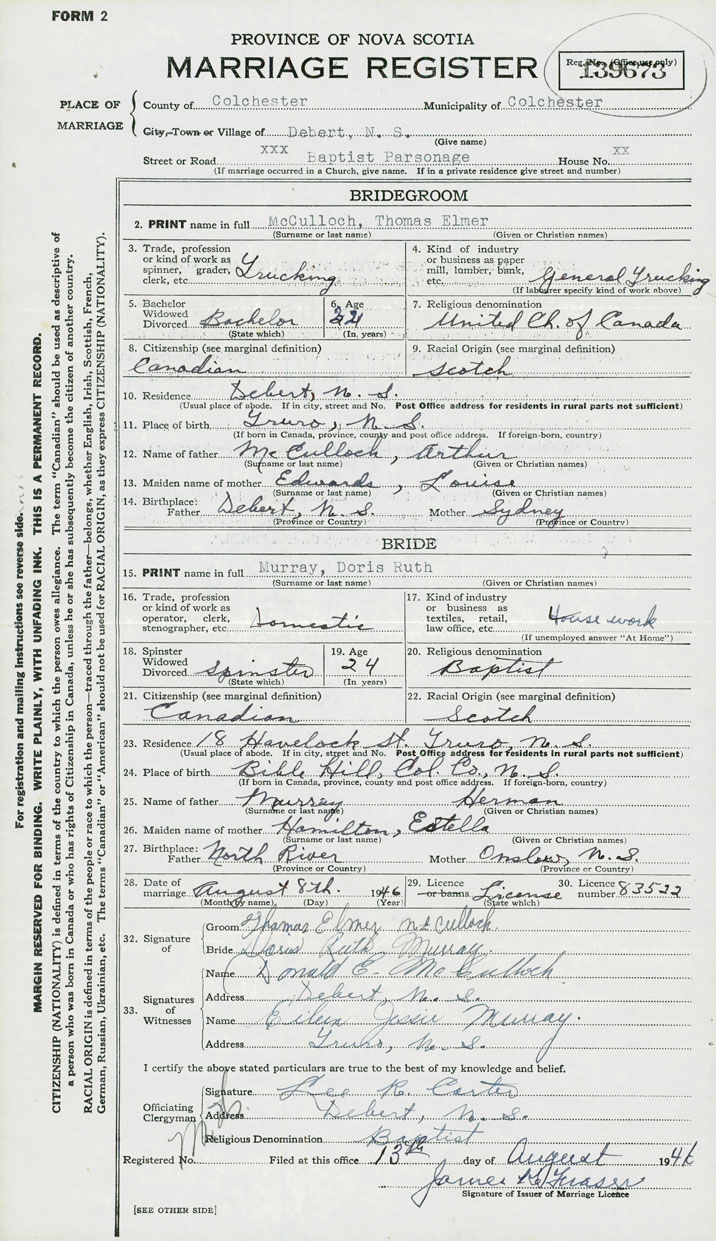 FORM 2
PROVINCE OF NOVA SCOTIA
MARRIAGE REGISTER
Reg. No. (Office use only)
139673
PLACE OF MARRIAGE
County of Colchester Municipality of Colchester
City, Town or Village of Debert, N. S.
(Give name)
Street or Road xxx Baptist Parsonage House No. xx
(If marriage occurred in a Church, give name. If in a private residence give street and number)
BRIDEGROOM
2. PRINT name in full McCulloch, Thomas Elmer
(Surname or last name) (Given or Christian names)
3. Trade, profession or kind of work as spinner, grader, clerk, etc. Trucking
4. Kind of industry or business as paper mill, lumber, bank, etc. General Trucking
(If labourer specify kind of work above)
5. Bachelor Widowed Divorced Bachelor
(State which)
6. Age 24
(In years)
7. Religious denomination
United Ch. of Canada
8. Citizenship (see marginal definition)
Canadian
9. Racial Origin (see marginal definition)
Scotch
10. Residence Debert, N. S.
(Usual place of abode. If in city, street and No. Post Office address for residents in rural parts not sufficient)
11. Place of birth Truro, N. S.
(If born in Canada, province, county and post office address. If foreign-born, country)
12. Name of father McCulloch, Arthur
(Surname or last name) (Given or Christian names)
13. Maiden name of mother Edwards, Louise
(Surname or last name) (Given or Christian names)
14. Birthplace: Father Debert, N. S. Mother Sydney
(Province or Country) (Province or Country)
BRIDE
15. PRINT name in full Murray, Doris Ruth
(Surname or last name) (Given or Christian names)
16. Trade, profession or kind of work as operator, clerk, stenographer, etc. Domestic
17. Kind of industry or business as textiles, retail, law office, etc. House work
(If unemployed answer "At Home")
18. Spinster Widowed Divorced Spinster
(State which)
19. Age 24
(In years)
20. Religious denomination
Baptist
21. Citizenship (see marginal definition)
Canadian
22. Racial Origin (see marginal definition)
Scotch
23. Residence 18 Havelock St. Truro, N. S.
(Usual place of abode. If in city, street and No. Post Office address for residents in rural parts not sufficient)
24. Place of birth Bible Hill, Col. Co., N. S.
(If born in Canada, province, county and post office address. If foreign-born, country)
25. Name of father Murray Herman
(Surname or last name) (Given or Christian names)
26. Maiden name of mother Hamilton, Estella
(Surname or last name) (Given or Christian names)
27. Birthplace: Father North River Mother Onslow, N. S.
(Province or Country) (Province or Country)
28. Date of marriage August 8th. 1946
(Month by name) (Day) (Year)
29. Licence or banns License
(State which)
30. Licence number 83522
32. Signature of
Groom Thomas Elmer McCulloch
Bride Doris Ruth Murray
33. Signatures of Witnesses
Name Donald E. McCulloch
Address Debert, N. S.
Name Eileen Jessie Murray.
Address Truro, N. S.
I certify the above stated particulars are true to the best of my knowledge and belief.
Officiating Clergyman
Signature Lee R. Carter
Address Debert, N. S.
Religious Denomination Baptist
Registered No. Filed at this office 13th day of August 1946
James K. Fraser
Signature of Issuer of Marriage Licence
[SEE OTHER SIDE]
For registration and mailing instructions see reverse side.
MARGIN RESERVED FOR BINDING. WRITE PLAINLY, WITH UNFADING INK. THIS IS A PERMANENT RECORD.
CITIZENSHIP (NATIONALITY) is defined in terms of the country to which the person owes allegiance. The term "Canadian" should be used as descriptive of
a person who was born in Canada or who has rights of Citizenship in Canada, unless he or she has subsequently become the citizen of another country.
RACIAL ORIGIN is defined in terms of the people or race to which the person—traced through the father—belongs, whether English, Irish, Scottish, French,
German, Russian, Ukrainian, etc. The terms "Canadian" or "American" should not be used for RACIAL ORIGIN, as they express CITIZENSHIP (NATIONALITY).